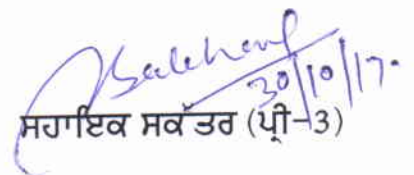 30/10/17.
ਸਹਾਇਕ ਸਕੱਤਰ (ਪ੍ਰੀ-3)